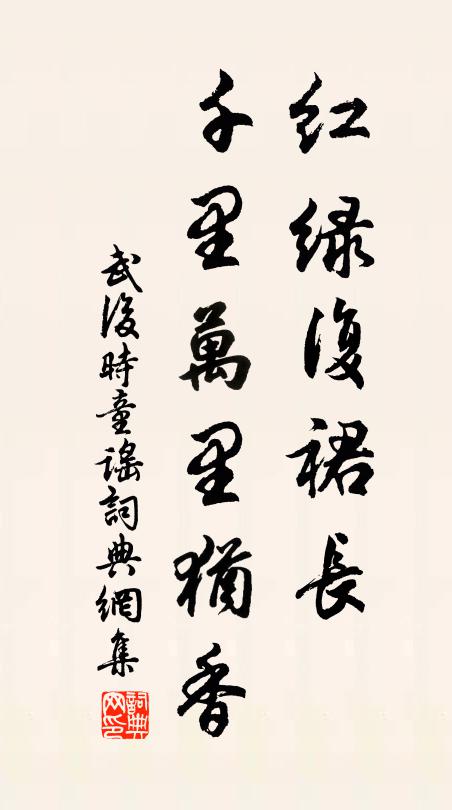 红绿復裙長
千里萬里猶香
武後時童謠詞典網集
詞典网印